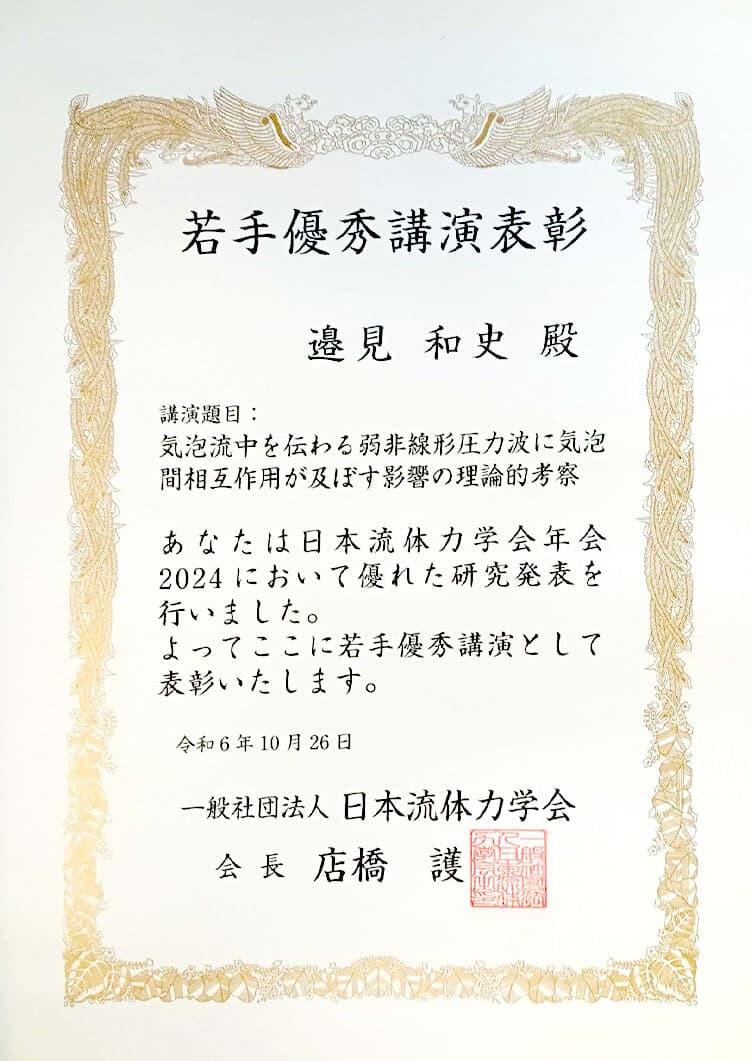 若手優秀講演表彰
邉見 和史 殿
講演題目：
気泡流中を伝わる弱非線形圧力波に気泡
間相互作用が及ぼす影響の理論的考察
あなたは日本流体力学会年会
2024 において優れた研究発表を
行いました。
よってここに若手優秀講演として
表彰いたします。
令和6年10月26日
一般社団法人 日本流体力学会
会長 店橋 護